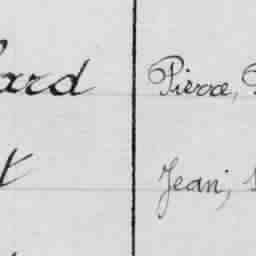 ard Pierre,
t Jean,